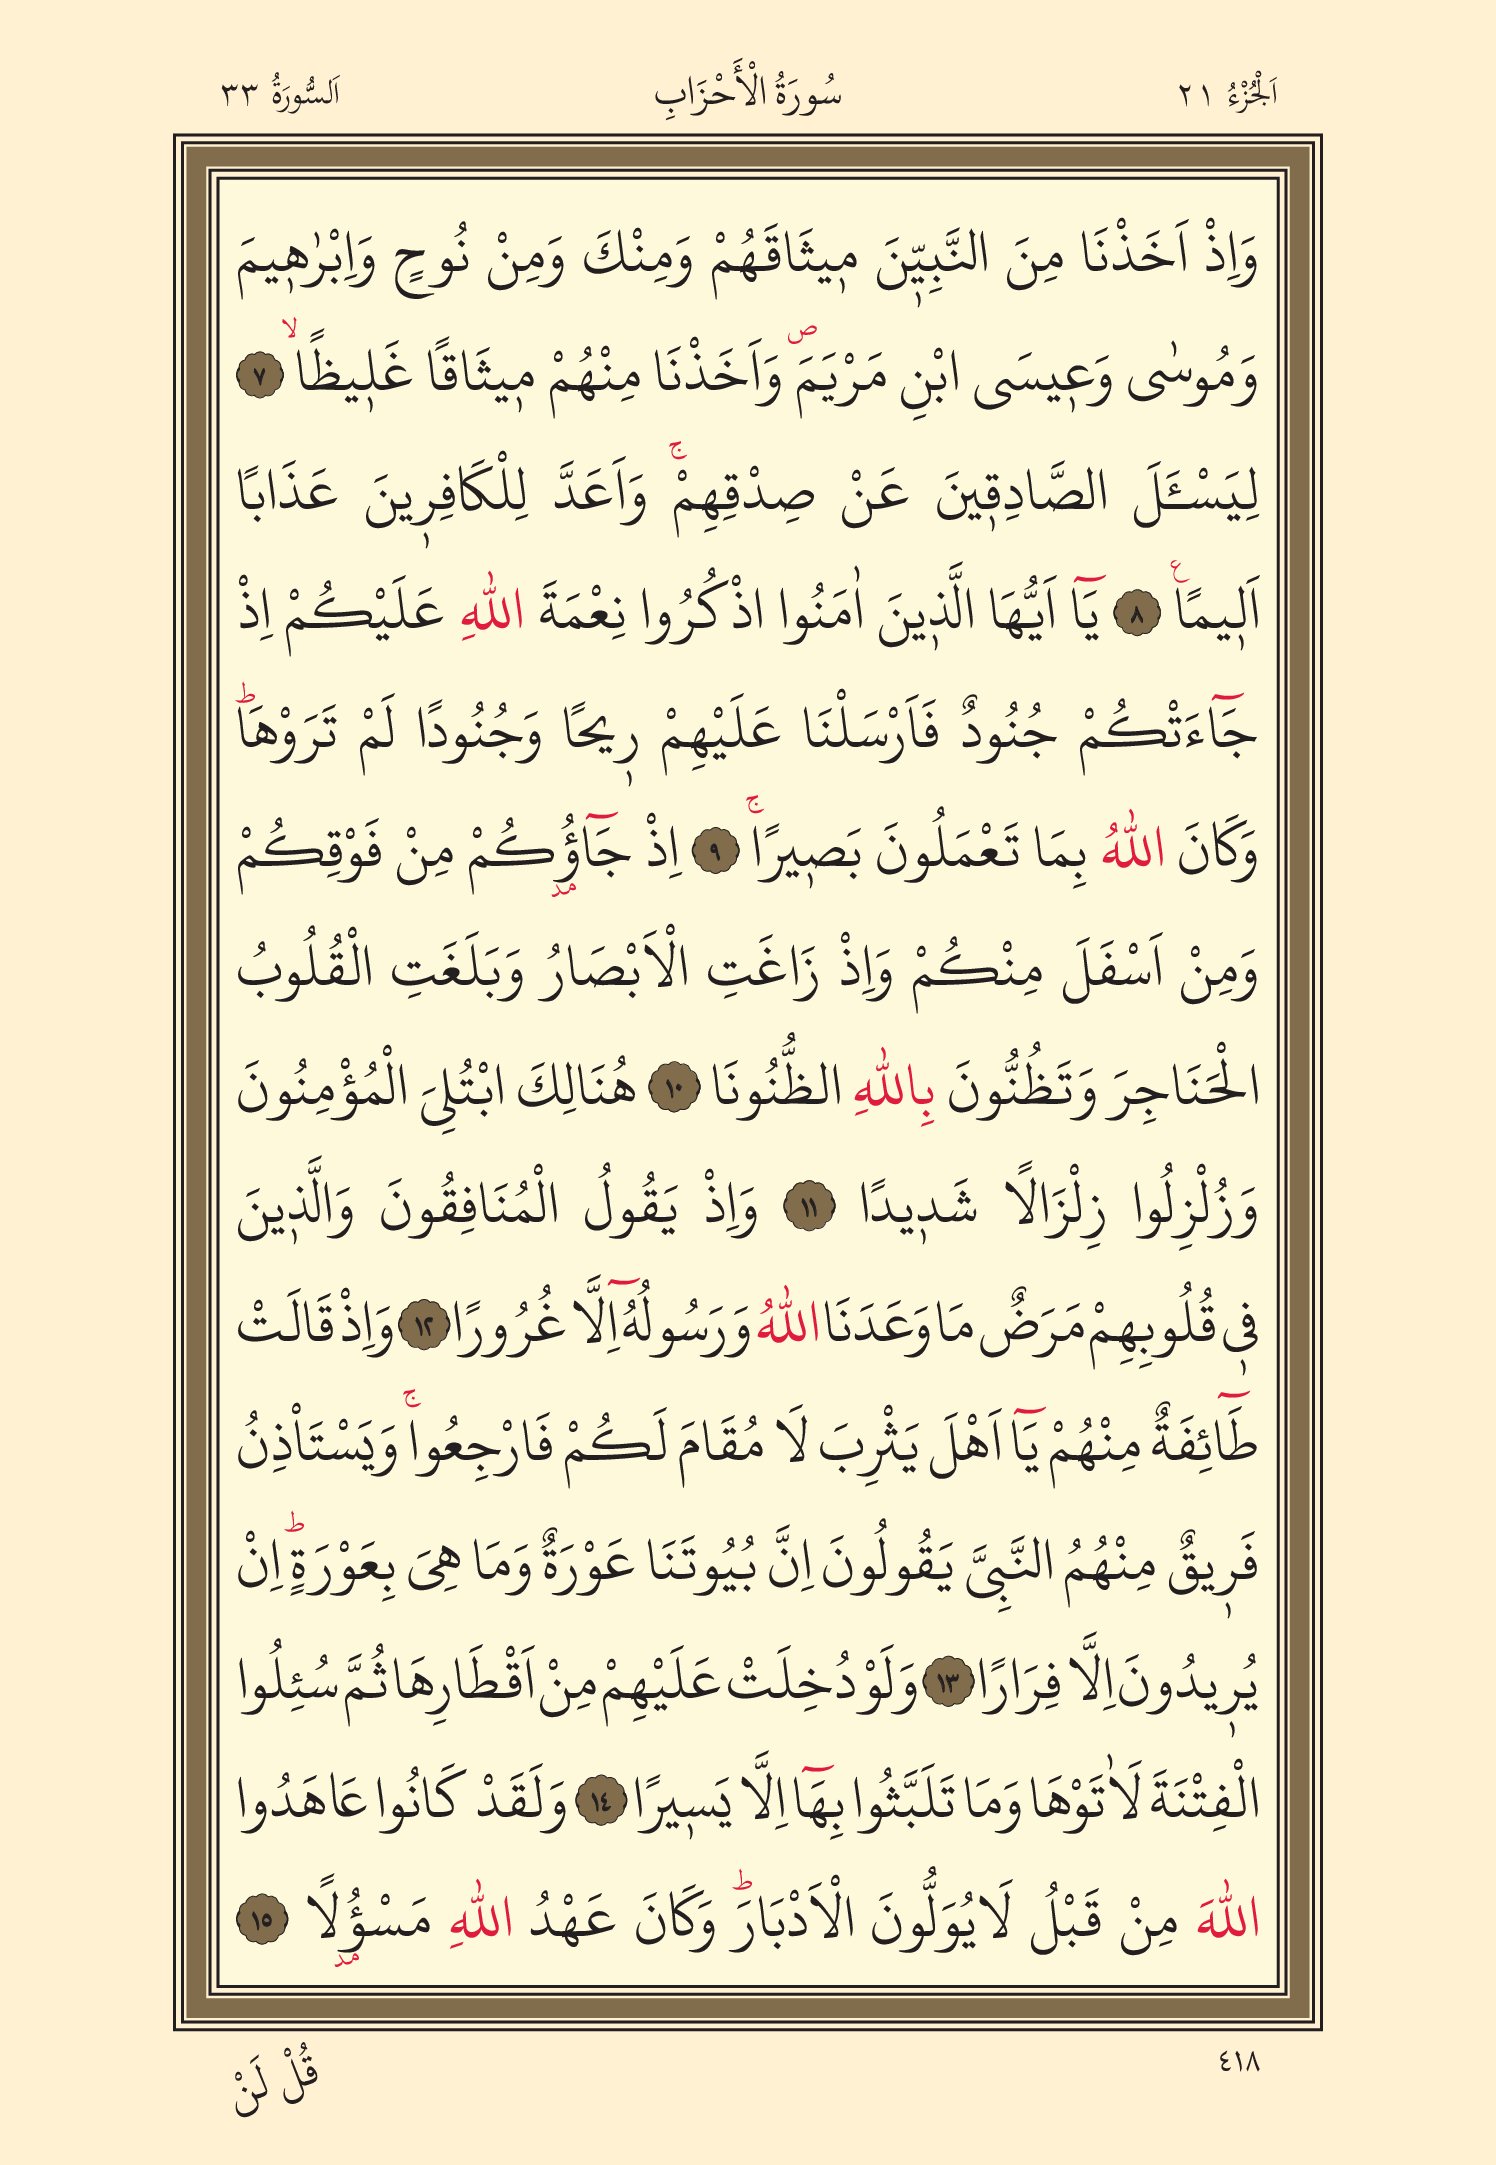 اَلْجُزْءُ ٢١
سُورَةُ الْأَحْزَابِ
اَلسُّورَةُ ٣٣
وَاِذْ اَخَذْنَا مِنَ النَّبِيّٖنَ مٖيثَاقَهُمْ وَمِنْكَ وَمِنْ نُوحٍ وَاِبْرٰهٖيمَ
وَمُوسٰى وَعٖيسَى ابْنِ مَرْيَمَ ۖ وَاَخَذْنَا مِنْهُمْ مٖيثَاقًا غَلٖيظًا ۙ ٧
لِيَسْـَٔلَ الصَّادِقٖينَ عَنْ صِدْقِهِمْ ۚ وَاَعَدَّ لِلْكَافِرٖينَ عَذَابًا
اَلٖيمًا ع ٨ يَٓا اَيُّهَا الَّذٖينَ اٰمَنُوا اذْكُرُوا نِعْمَةَ اللّٰهِ عَلَيْكُمْ اِذْ
جَٓاءَتْكُمْ جُنُودٌ فَاَرْسَلْنَا عَلَيْهِمْ رٖيحًا وَجُنُودًا لَمْ تَرَوْهَا ؕ
وَكَانَ اللّٰهُ بِمَا تَعْمَلُونَ بَصٖيرًا ۚ ٩ اِذْ جَٓاؤُ۫كُمْ مِنْ فَوْقِكُمْ
وَمِنْ اَسْفَلَ مِنْكُمْ وَاِذْ زَاغَتِ الْاَبْصَارُ وَبَلَغَتِ الْقُلُوبُ
الْحَنَاجِرَ وَتَظُنُّونَ بِاللّٰهِ الظُّنُونَا ١٠ هُنَالِكَ ابْتُلِىَ الْمُؤْمِنُونَ
وَزُلْزِلُوا زِلْزَالًا شَدٖيدًا ١١ وَاِذْ يَقُولُ الْمُنَافِقُونَ وَالَّذٖينَ
فٖى قُلُوبِهِمْ مَرَضٌ مَا وَعَدَنَا اللّٰهُ وَرَسُولُهُٓ اِلَّا غُرُورًا ١٢ وَاِذْ قَالَتْ
طَٓائِفَةٌ مِنْهُمْ يَٓا اَهْلَ يَثْرِبَ لَا مُقَامَ لَكُمْ فَارْجِعُوا ۚ وَيَسْتَاْذِنُ
فَرٖيقٌ مِنْهُمُ النَّبِىَّ يَقُولُونَ اِنَّ بُيُوتَنَا عَوْرَةٌ وَمَا هِىَ بِعَوْرَةٍ ؕ اِنْ
يُرٖيدُونَ اِلَّا فِرَارًا ١٣ وَلَوْ دُخِلَتْ عَلَيْهِمْ مِنْ اَقْطَارِهَا ثُمَّ سُئِلُوا
الْفِتْنَةَ لَاٰتَوْهَا وَمَا تَلَبَّثُوا بِهَٓا اِلَّا يَسٖيرًا ١٤ وَلَقَدْ كَانُوا عَاهَدُوا
اللّٰهَ مِنْ قَبْلُ لَا يُوَلُّونَ الْاَدْبَارَ ؕ وَكَانَ عَهْدُ اللّٰهِ مَسْؤُ۫لًا ١٥
٤١٨
قُلْ لَنْ